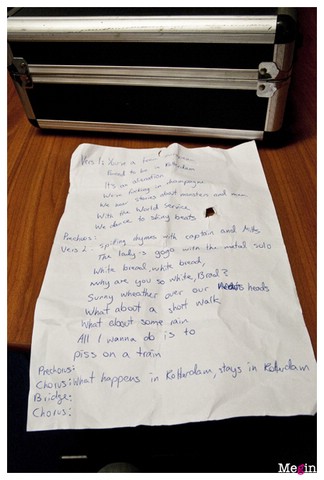 Vers 1: You're a
Proud to be in Rotterdam
It's an alienation
We're fucking in champagne
We hear stories about monsters and men
With the World service
We dance to shiny beats
Prechorus:
Vers 2: spitting rhymes with captain and Ads
The lady's gaga with the metal solo
White bread, white bread,
why are you so white, Bread?
Sunny wheather over our heads
What about a short walk
What about some rain
All I wanna do is to
piss on a train
Prechorus:
Chorus: What happens in Rotterdam, stays in Rotterdam
Bridge:
Chorus:
Megin